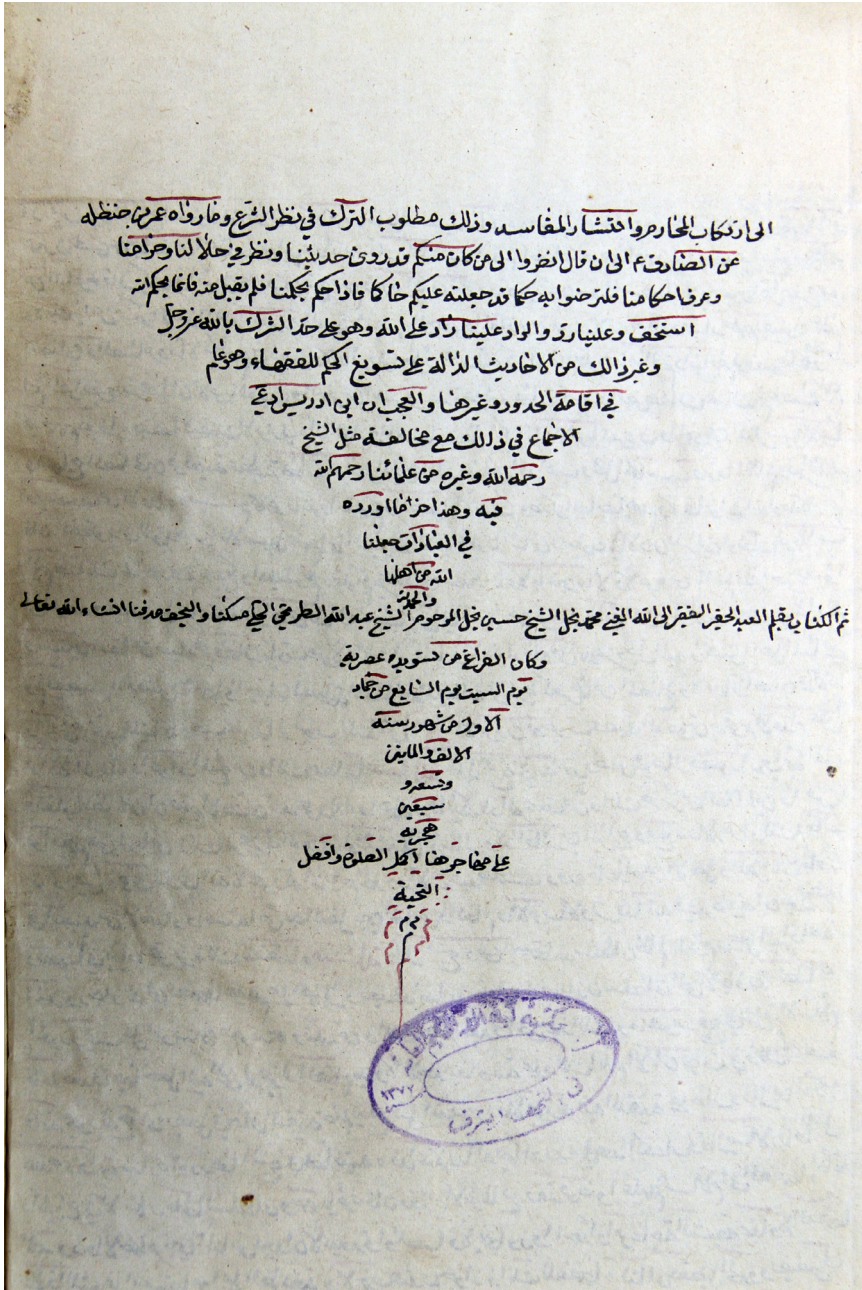 الى ارتكاب المحارم وانتشار المفاسد وذلك مطلوب الترك في نظر الشرع وما رواه عمر بن حنظله
عن الصادق ع الى ان قال انظروا الى من كان منكم قد روى حديثنا ونظر في حلالنا وحرامنا
وعرف احكامنا فلترضوا به حكما قد جعلته عليكم حاكما فاذا حكم بحكمنا فلم يقبل منه فانما بحكم الله
استخف وعلينا رد والراد علينا راد على الله وهو على حد الشرك بالله عز وجل
وغير ذالك من الاحاديث الدالة على تسويغ الحكم للفقهاء وهو عام
في اقامة الحدود وغيرها والعجب ان ابن ادريس ادعى
الاجماع في ذالك مع مخالفة مثل الشيخ
رحمه الله وغيره من علمائنا رحمهم الله
فيه وهذا اخر ما اورده
في العبادات جعلنا
الله من اهلها
والحمد لله
تم الكتاب بقلم العبد الحقير الفقير الى الله الغني محمد نجل الشيخ حسين نجل المرحوم الشيخ عبد الله مسكنا والنجف مدفنا انشاء الله تعالى
وكان الفراغ من تسويده عصرية
يوم السبت يوم السابع من جماد
الاول من شهور سنة
الالف والماتين
وتسعه و
سبعين
هجريه
على مهاجرها اكمل الصلوة وافضل
التحية
م م م
مكتبة العامة
١٣٧٧
في النجف الاشرف